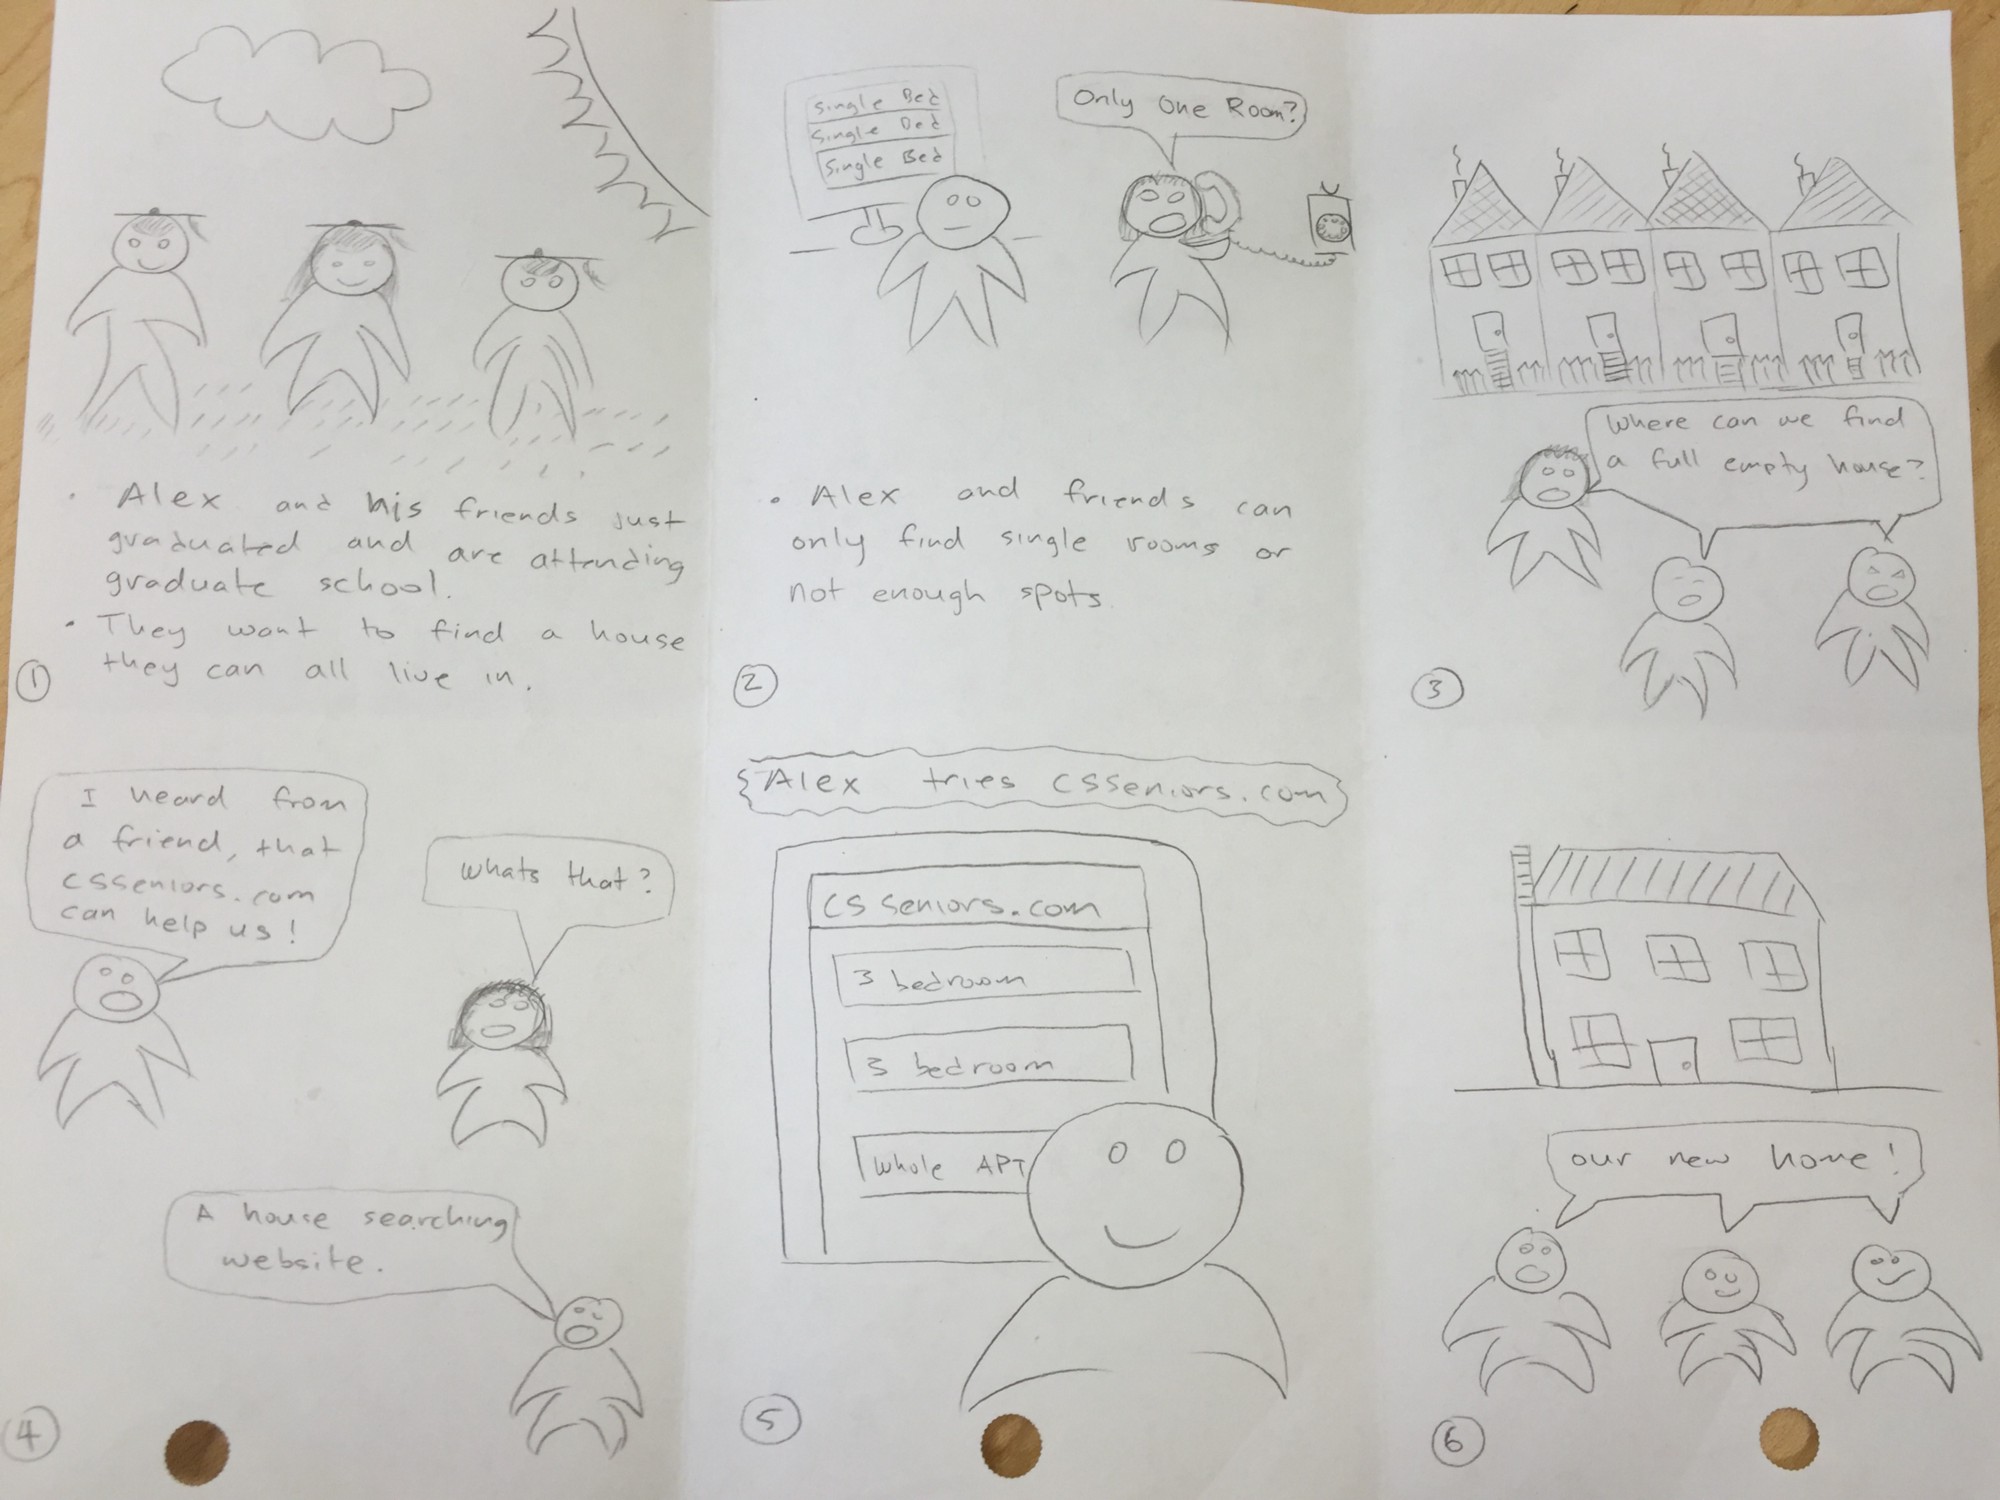 • Alex and his friends just
graduated and are attending
graduate school.
• They want to find a house
they can all live in.
1
Single Bed
Single Bed
Single Bed
Only One Room?
• Alex and friends can
only find single rooms or
not enough spots.
2
Where can we find
a full empty house?
3
I heard from
a friend, that
csseniors.com
can help us!
whats that?
A house searching
website.
4
Alex tries csseniors.com
cs seniors.com
3 bedroom
3 bedroom
Whole APT
5
our new home!
6